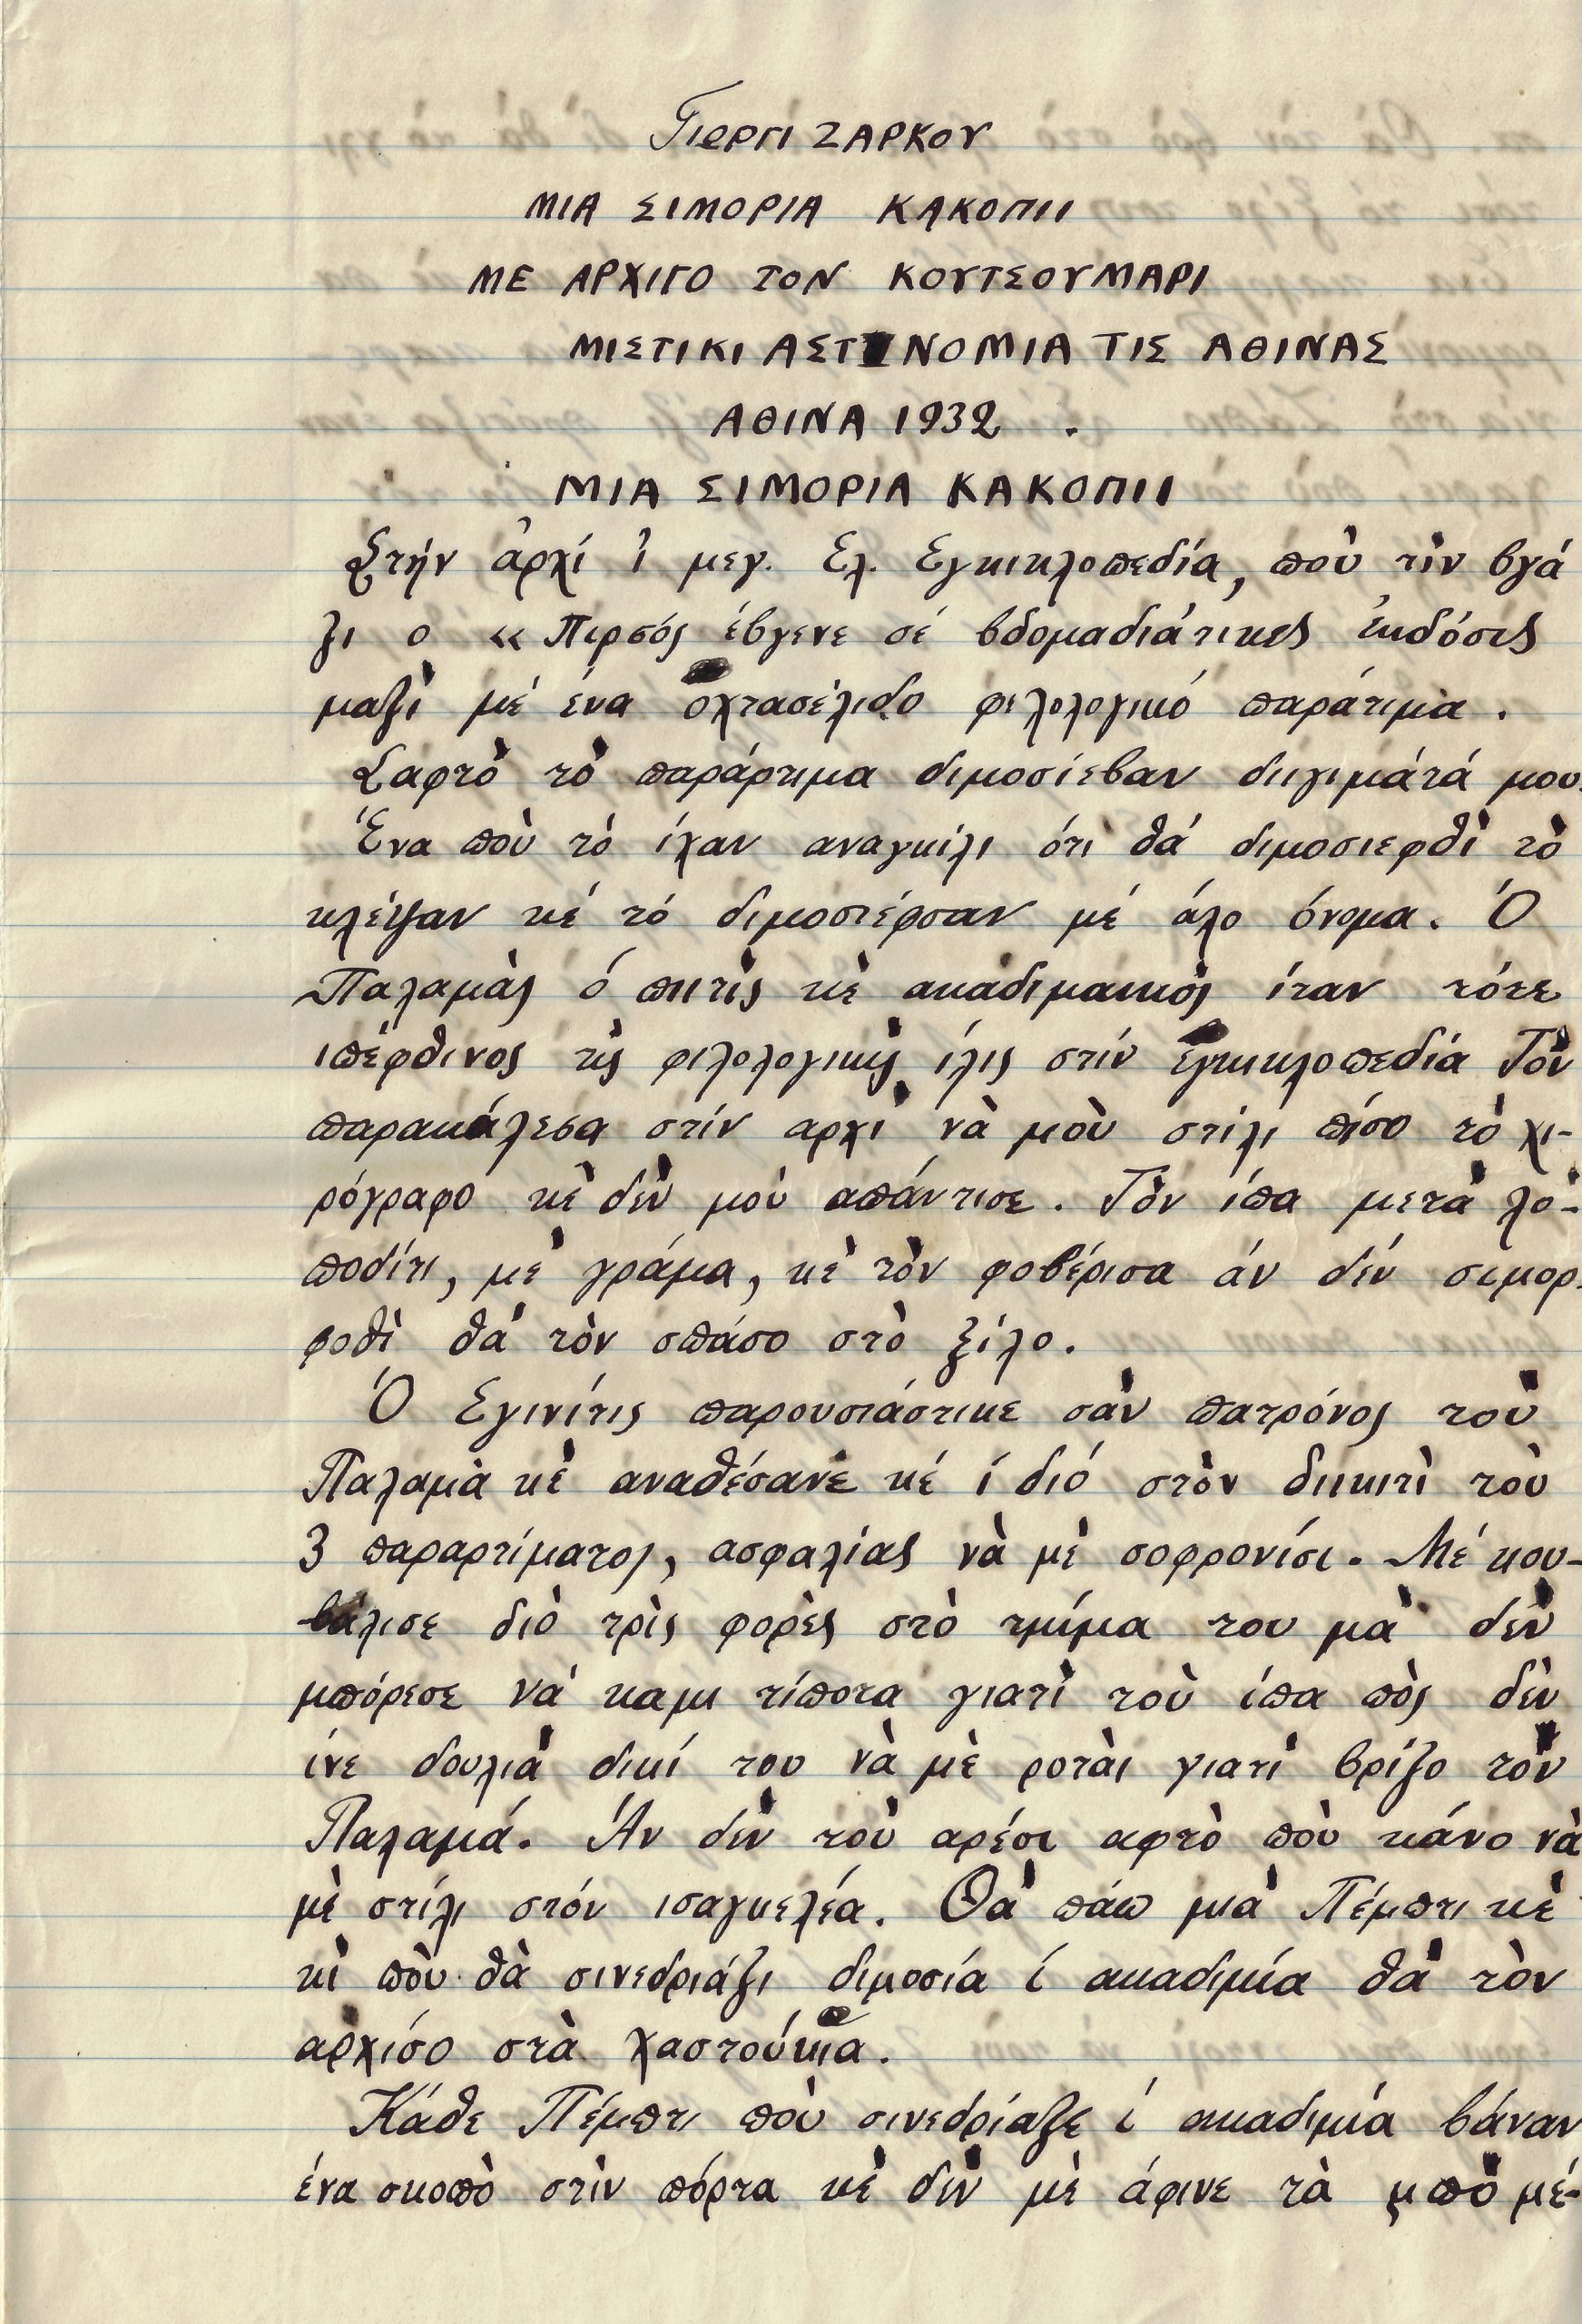 Γιωργι ΖΑΡΚΟΥ
ΜΙΑ ΣΙΜΟΡΙΑ ΚΑΚΟΠΙΙ
ΜΕ ΑΡΧΙΓΟ ΤΟΝ ΚΟΥΤΣΟΥΜΑΡΙ
ΜΙΣΤΙΚΙ ΑΣΤΙΝΟΜΙΑ ΤΙΣ ΑΘΙΝΑΣ
ΑΘΙΝΑ 1932 .
ΜΙΑ ΣΙΜΟΡΙΑ ΚΑΚΟΠΙΙ
Στήν ἀρχί ἱ μεγ. Ελ. Εγκικλοπεδία, ποὺ τὶν βγά
ζι ο « Πιρσός έβγενε σέ βδομαδιάτικες ἐκδόσις
μαζὶ μέ ένα οχτασέλιδο φιλολογικό παράτιμα .
Σαφτὸ τὸ παράρτιμα διμοσίεβαν διιγιμάτά μου.
Ένα ποὺ τό ίχαν αναγκίλι ότι θά διμοσιεφθὶ τὸ
κλέψαν κέ τό διμοσιέφσαν μέ άλο όνομα. Ό
Παλαμὰς ό πιιτὶς κὲ ακαδιμαικὸς ίταν τότε
ιπέφθινος τὶς φιλολογικὶς ίλις στίν εγκικλοπεδία Τὸν
παρακάλεσα στίν αρχὶ νὰ μοὺ στίλι πίσο τό χι-
ρόγραφο κὲ δὲν μού απάντισε. Τὸν ίπα μετὰ λο-
ποδίτι, μὲ γράμα, κὲ τὸν φοβέρισα άν δέν σιμορ-
φοθὶ θά τὸν σπάσο στὸ ξίλο.
Ό Εγινίτις παρουσιάστικε σὰν πατρόνος τοὺ
Παλαμὰ κὲ αναθέσανε κέ ί διό στὸν διικιτὶ τοὺ
3 παραρτίματος, ασφαλίας νὰ μὲ σοφρονίσι. Μέ κου-
βάλισε διὸ τρὶς φορὲς στὸ τμίμα του μὰ δὲν
μπόρεσε νά καμι τίποτα γιατὶ τοὺ ίπα πὸς δὲν
ίνε δουλιὰ δικί του νὰ μὲ ροτὰι γιατὶ βρίζο τὸν
Παλαμά. Άν δὲν τοὺ αρέσι αφτὸ ποὺ κάνο νὰ
μὲ στίλι στόν ισαγκελέα. Θὰ πάω μιὰ Πέμπτι κὲ
κὶ ποὺ θὰ σινεδριάζι διμοσία ί ακαδιμία θὰ τὸν
αρχίσο στὰ χαστούκια.
Κάθε Πέμπτι ποὺ σινεδρίαζε ί ακαδιμία βάναν
ένα σκοπὸ στὶν πόρτα κὲ δὲν μὲ άφινε τὰ μπὸ μέ-